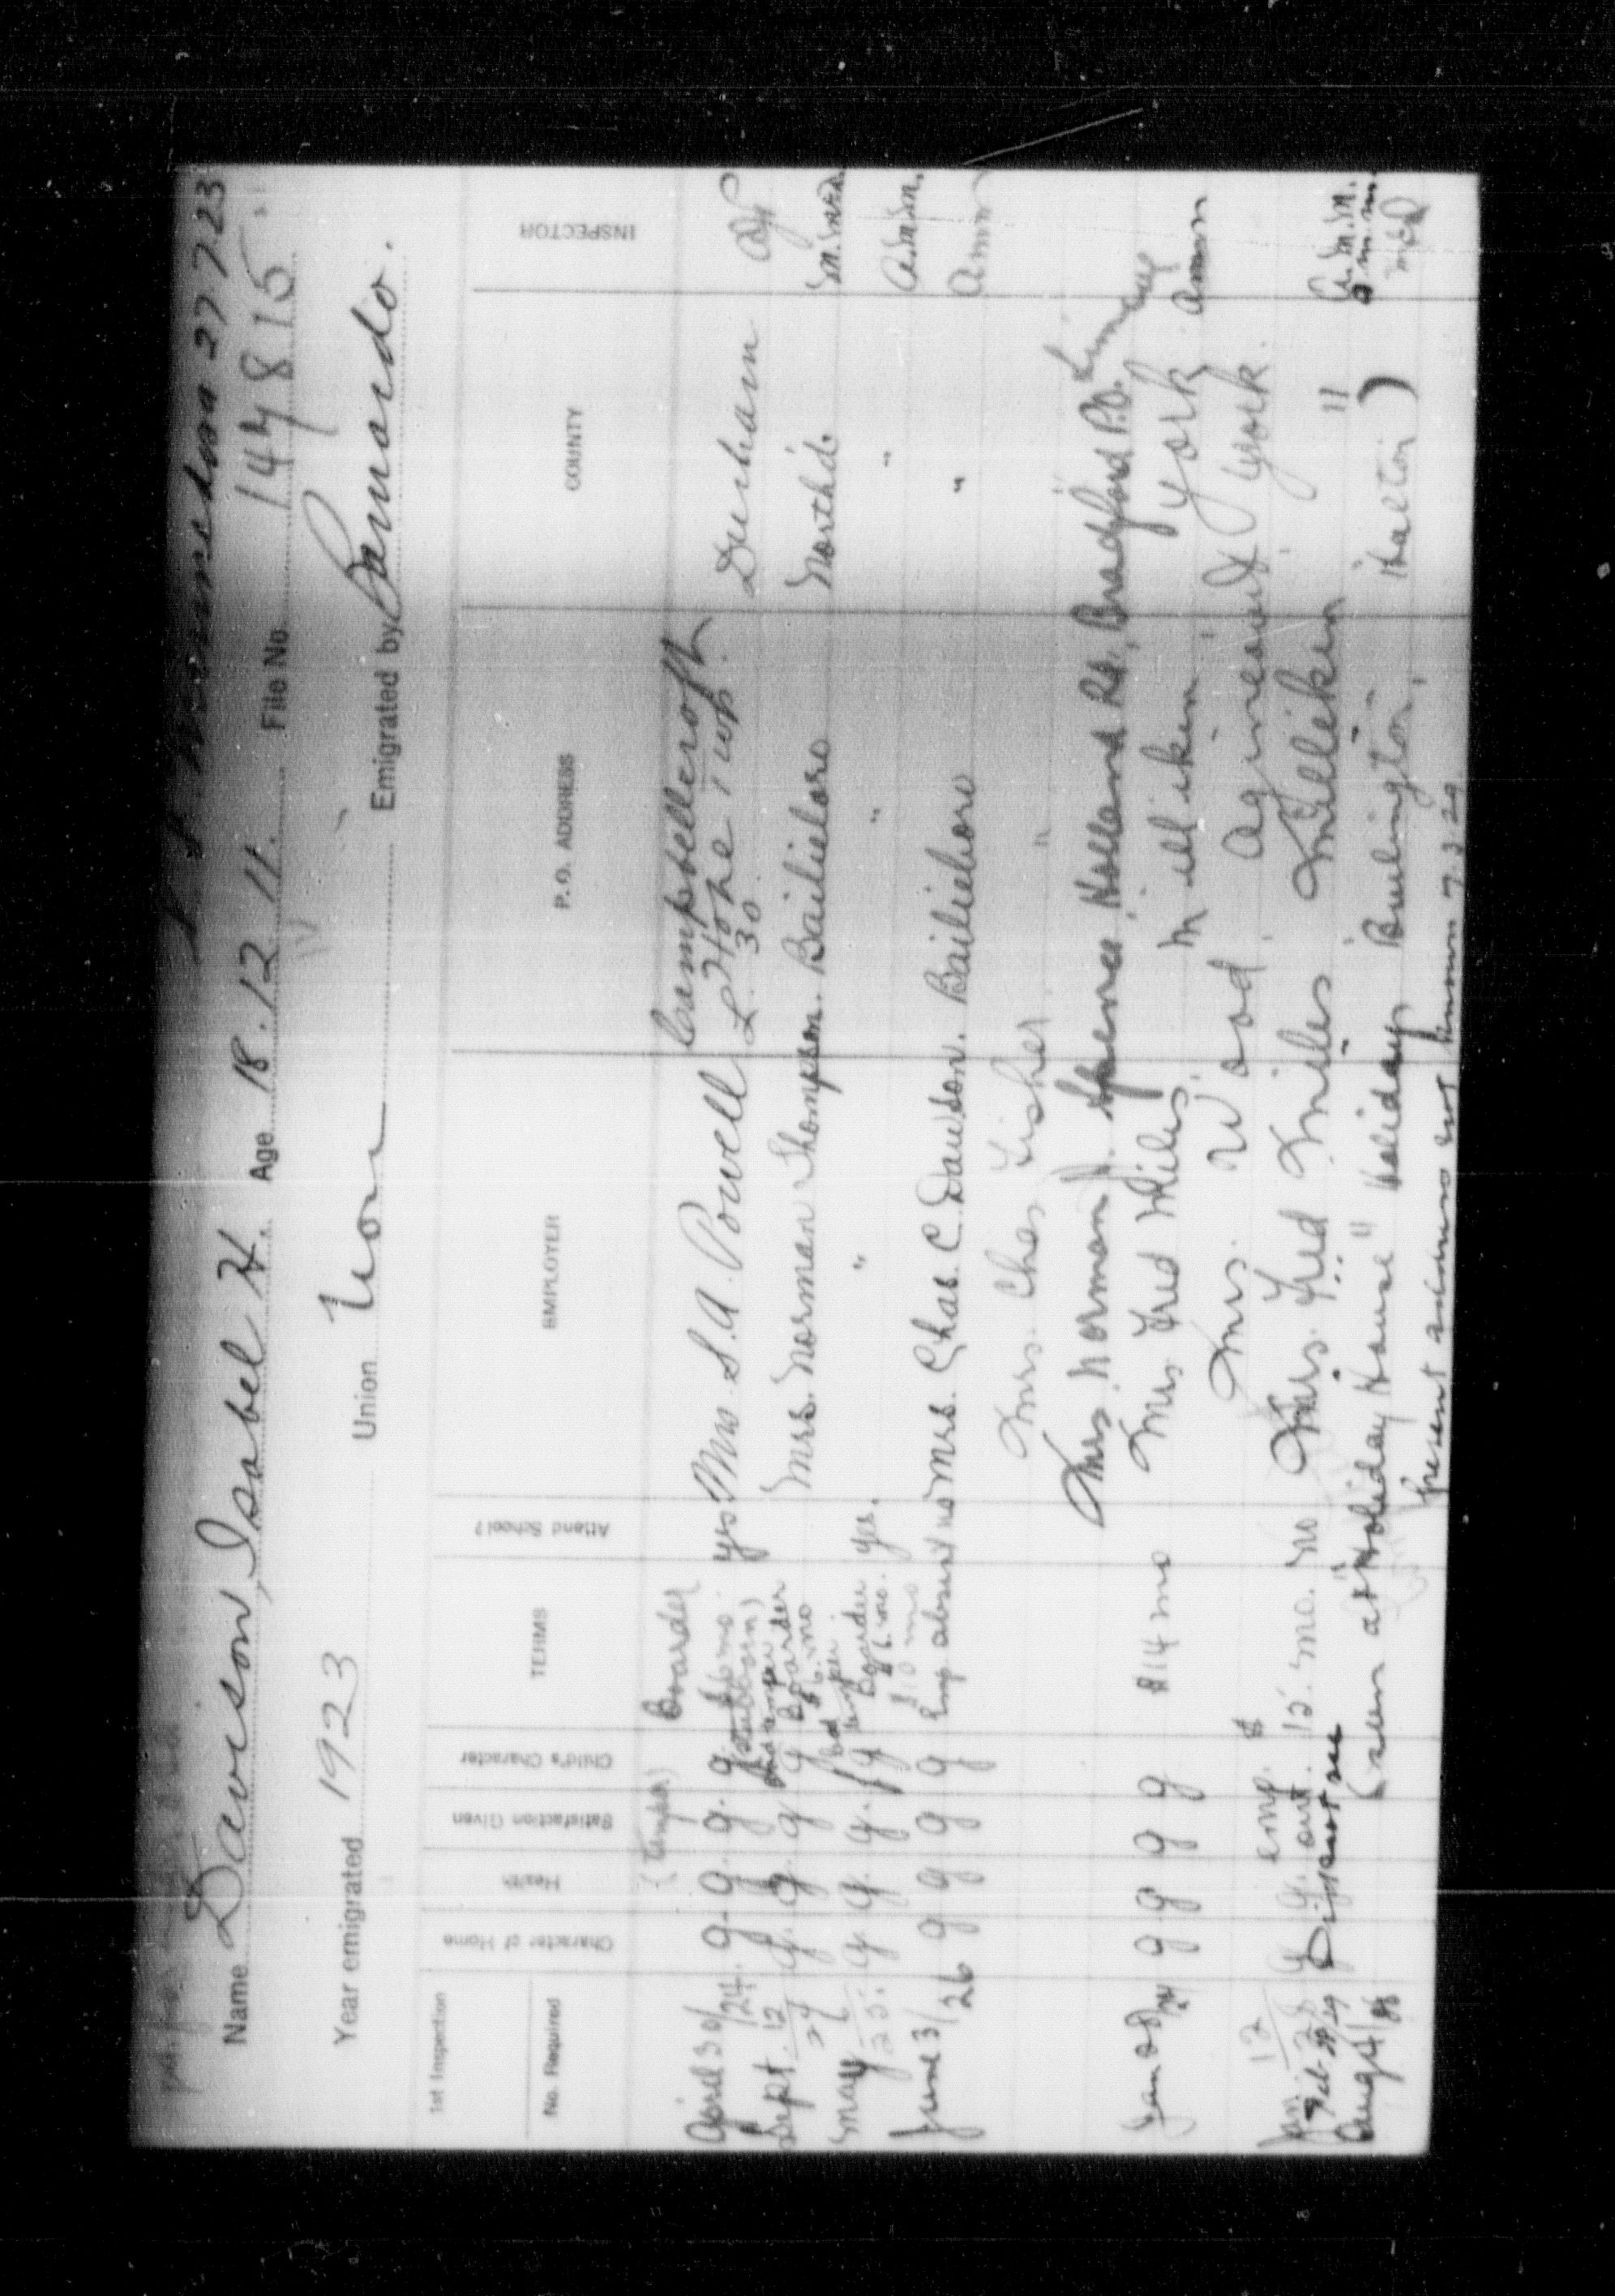 27 7 23
Name Davison, Isabel H. Age 18.12.11. File No. 147815
Year emigrated 1923 Union Non Emigrated by Barnardo.
1st Inspection
No. Required Character of Home Health Satisfaction Given Child's Character TERMS Attend School? EMPLOYER P.O. ADDRESS COUNTY INSPECTOR
(temper) Boarder Campbellcroft
April 30/24. g. g. g. g. $6 mo. yes Mrs S.A. Powell L. Hope Twp. Durham
(stubborn) 30
Sept. 12/24 g. g. g g Boarder $6. mo Mrs. Norman Thompson. Bailieboro North'd.
bad temper
May 6/25. g. g. g. g Boarder $6. mo. yes. " " "
$10 mo
June 3/26 g g g g Emp absent no Mrs. Chas. C. Dawson. Bailieboro " A.M.M.
Mrs. Chas Fisher " "
Mrs. Norman J. Spence, Holland Rd., Bradford P.O. Simcoe
Jan 28 g g g g $14 mo Mrs Fred Miles Milliken York
Mrs. Wood. Agincourt York.
Jan. 12/28 g g. emp. out. $15. mo. no Mrs. Fred Miles Milliken " A.M.M.
Disport see
Aug 4/28 (seen at "Holiday House" Holidays Burlington, Halton)
present address not known 7.3.29